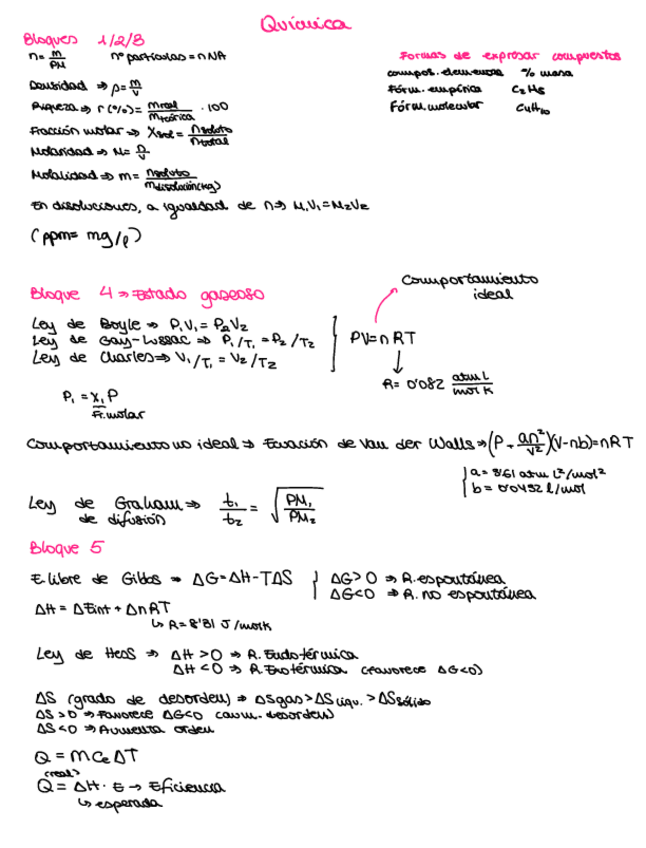 Química
Bloques 1/2/3
n= m/PM nº partículas = n NA
Densidad ⇒ ρ= m/V
Riqueza ⇒ r(%)= mreal/mteórica · 100
Fracción molar ⇒ Xsol = nsoluto/ntotal
Molaridad ⇒ M= n/V
Molalidad ⇒ m= nsoluto/mdisolución(kg)
En disoluciones, a igualdad de n ⇒ M₁V₁=M₂V₂
(ppm= mg/l)
Formas de expresar compuestos
compos. elemental % masa
Fórm. empírica C₂H₅
Fórm. molecular C₄H₁₀
Bloque 4 ⇒ Estado gaseoso
Comportamiento
ideal
Ley de Boyle ⇒ P₁V₁ = P₂V₂
Ley de Gay-Lussac ⇒ P₁/T₁ = P₂/T₂
Ley de Charles ⇒ V₁/T₁ = V₂/T₂
PV=nRT
R= 0'082 atm L/mol K
P₁ = X₁ P
Fr. molar
Comportamiento no ideal ⇒ Ecuación de Van der Walls ⇒ (P + an²/V²)(V-nb)=nRT
a= 3'61 atm L²/mol²
b= 0'0432 l/mol
Ley de Graham ⇒ t₁/t₂ = √PM₁/PM₂
de difusión
Bloque 5
E libre de Gibbs ⇒ ΔG=ΔH-TΔS
ΔG>0 ⇒ R. espontánea
ΔG<0 ⇒ R. no espontánea
ΔH = ΔEint + ΔnRT
↳ R= 8'31 J/molK
Ley de Hess ⇒ ΔH >0 ⇒ R. Endotérmica
ΔH <0 ⇒ R. Exotérmica (favorece ΔG<0)
ΔS (grado de desorden) ⇒ ΔSgas > ΔSlíqu. > ΔSsólido
ΔS >0 ⇒ Favorece ΔG<0 (aum. desorden)
ΔS <0 ⇒ Aumenta orden
Q = m Ce ΔT
(real)
Q = ΔH · E → Eficiencia
↳ esperada